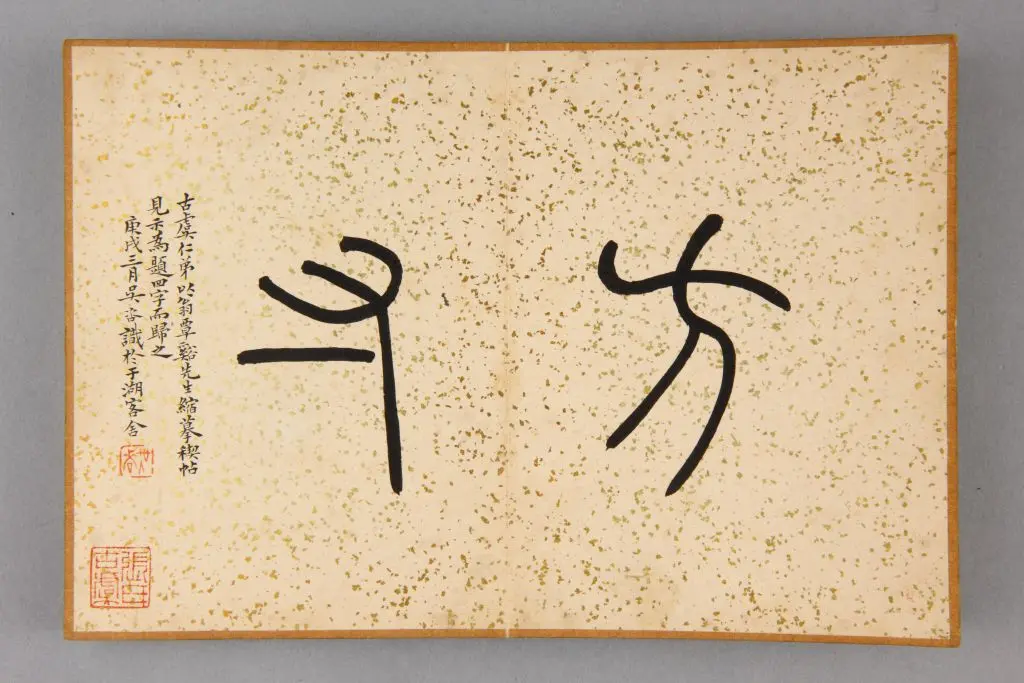 方寸
古虞仁弟以翁覃谿先生縮摹禊帖
見示為題四字而歸之
庚戌三月吳咨識於于湖客舍